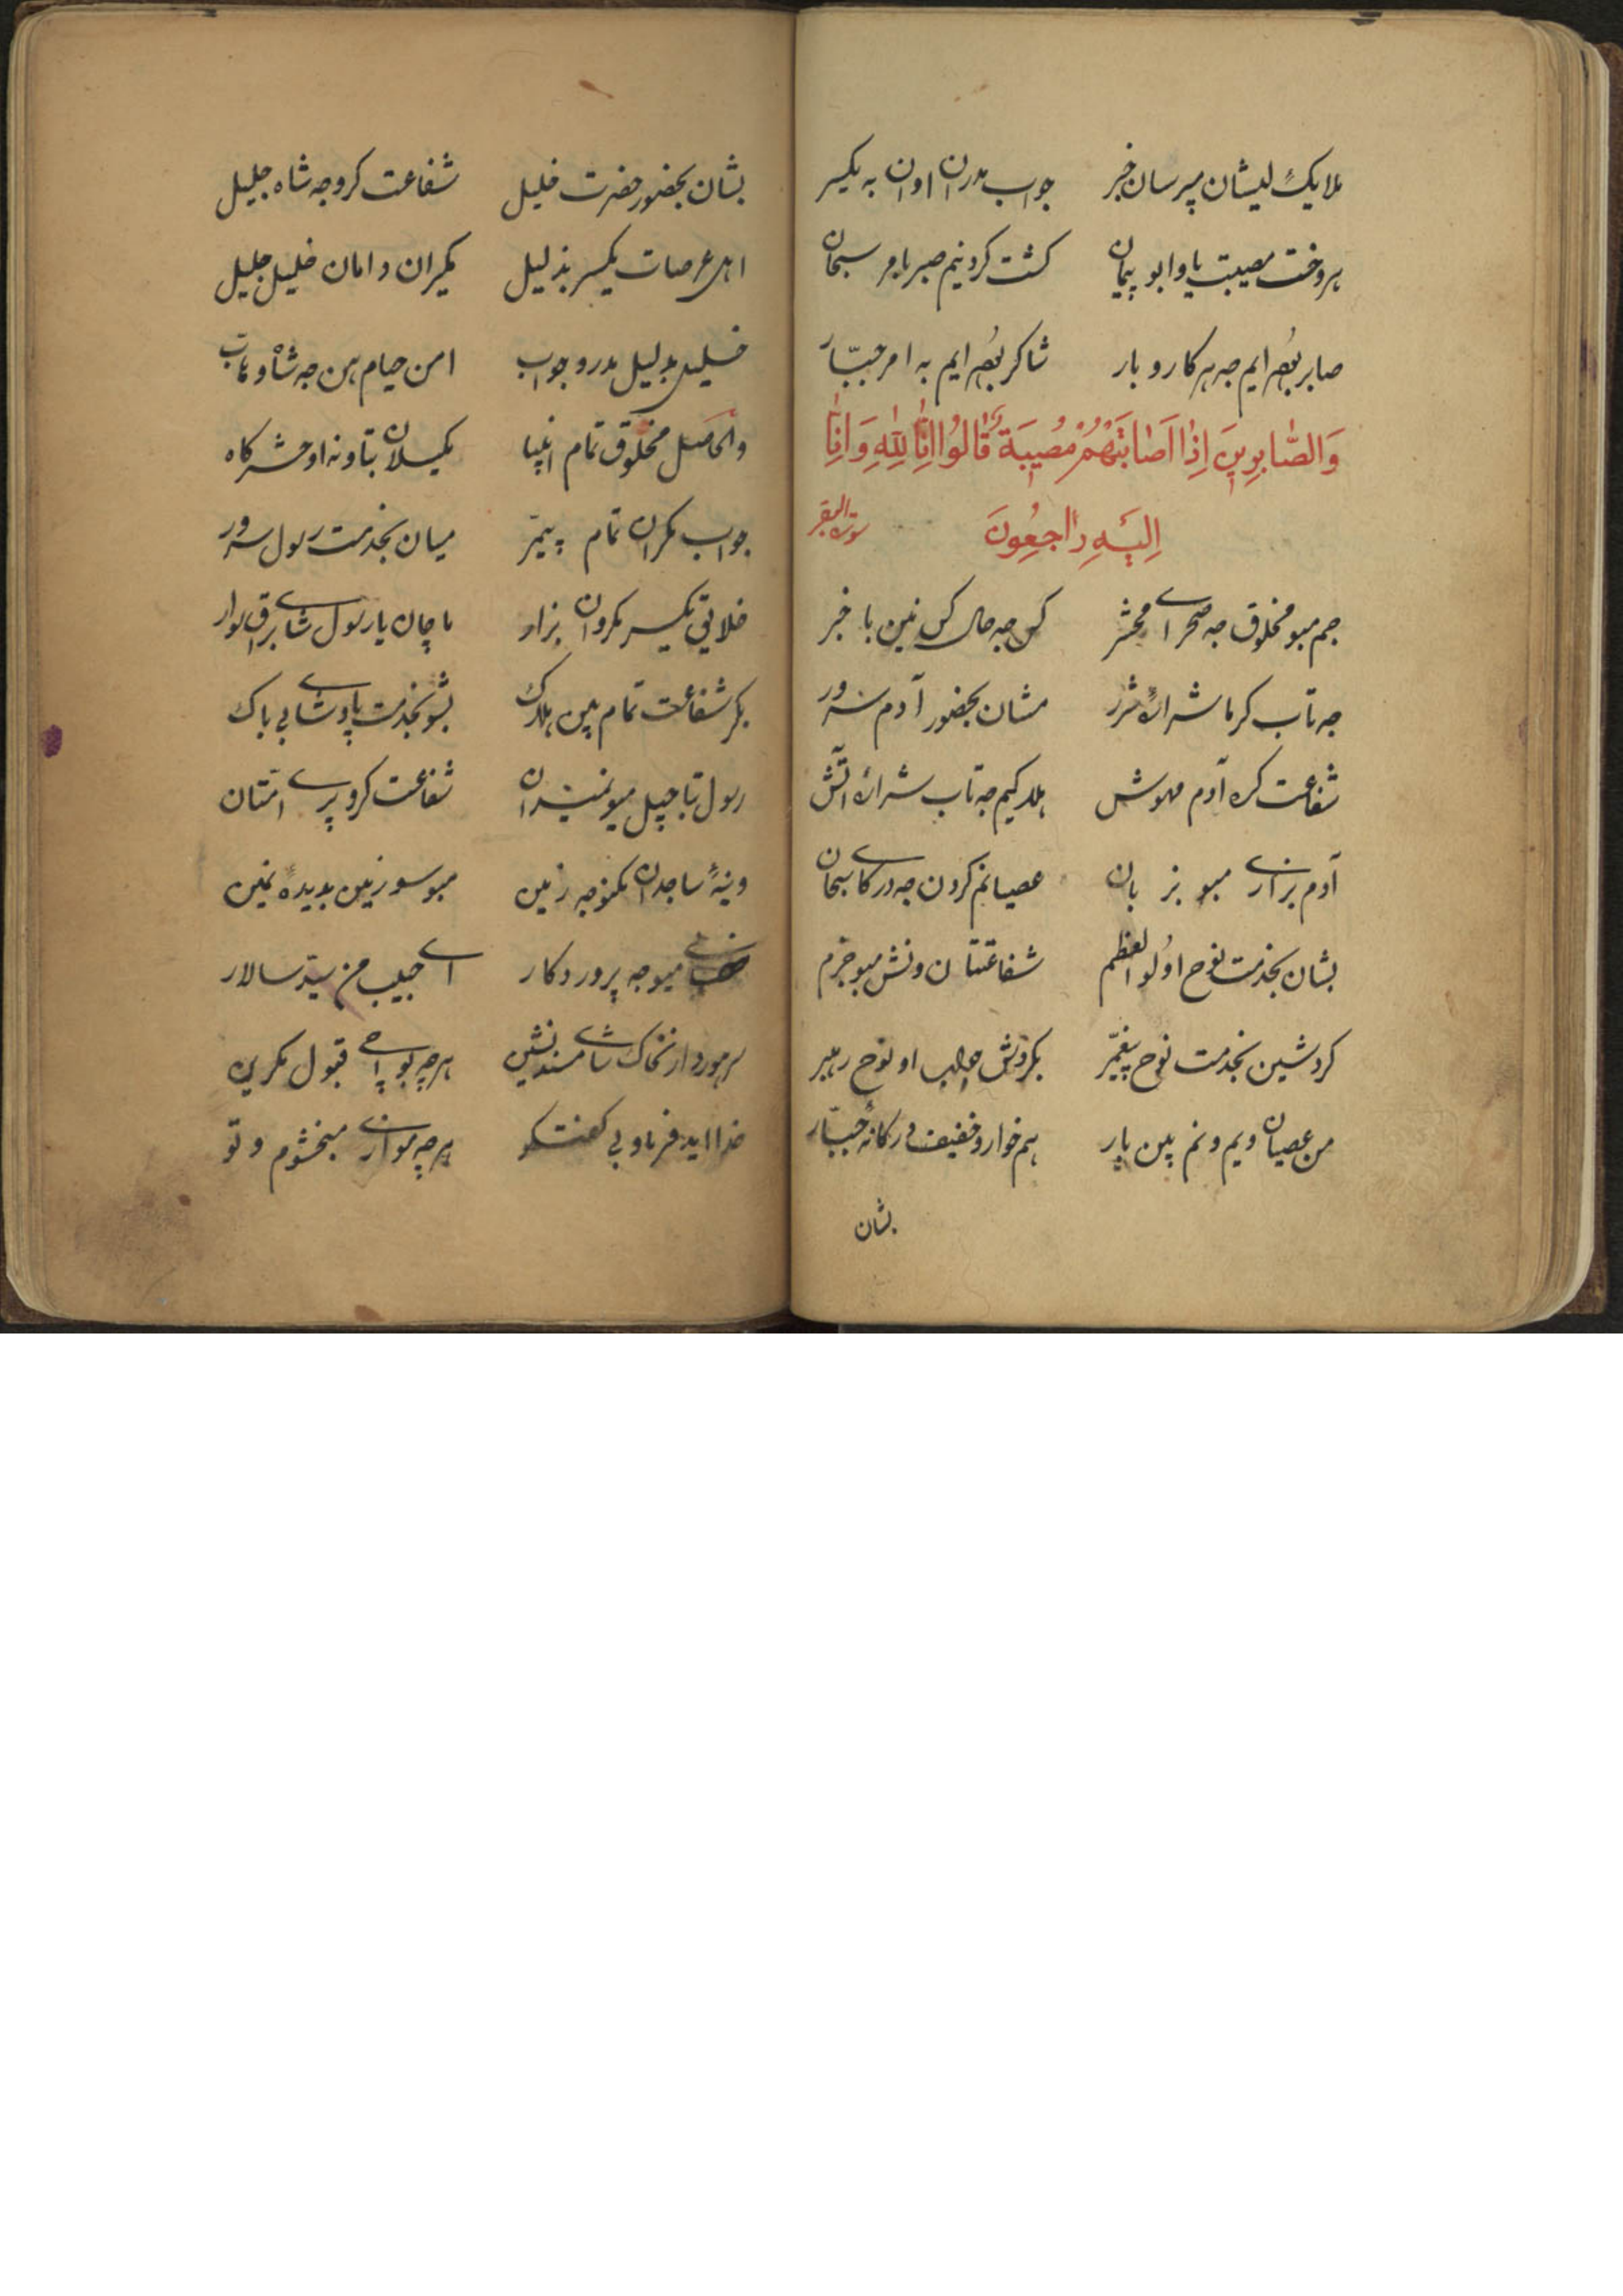 ملایک لیشان میرسان خبر جواب مدران اوان به یکسر
هروخت مصیبت یاوا بو پیمان کشت کردنیم صبر بامر سبحان
صابر بو ایم جه هر کار و بار شاکر بو ایم به امر جبّار
وَالصَّابِرِینَ اِذَا اَصَابَتْهُمْ مُصِیبَةٌ قَالُوا اِنَّا لِلّٰهِ وَاِنَّا
اِلَیْهِ رَاجِعُونَ سورة البقر
جم مبو مخلوق جه صحرای محشر کس جه حال کس نین با خبر
جه تاب کرما شراره شرر مشان بحضور آدم سرور
شفاعت کره آدم مهوش هلاکیم جه تاب شراره آتش
آدم بزاری مبو بز بان عصیانم کردن جه درکای سبحان
بشان بخدمت نوح اولو العظم شفاعتتان ونش مبو جزم
کردشین بخدمت نوح پیغمبر بکروش جواب او نوح رهبر
من عصیان ویم ونم بین بار هم خوار و خفیف درکانه جبّار
بشان
بشان بحضور حضرت خلیل شفاعت کرو جه شاه جلیل
اهل عرصات یکسر بذلیل مکیران دامان خلیل جلیل
خلیل بدلیل مدرو جواب
والحاصل مخلوق تمام انبیا مکیلان تاونه او حشرکاه
جواب مکران تمام پیغمبر میان بخدمت رسول سرور
خلایق یکسر مکروان بزار ماچان یا رسول شای براق سوار
بکر شفاعت تمام بین هلاک بشو بخدمت پادشای بی باک
رسول تا چپل میو شفاعت کرو پری امتان
وینه ساجدان مکنو جه زمین مبو سو زمین بدیده نمین
میو جه پروردکار ای حبیب من سید سالار
سر هوردار نخاک شای مسند نشین هرچه بواچی قبول مکرین
خدا اید فرماو بی کفتکو هرچه موازی مبخشوم و تو